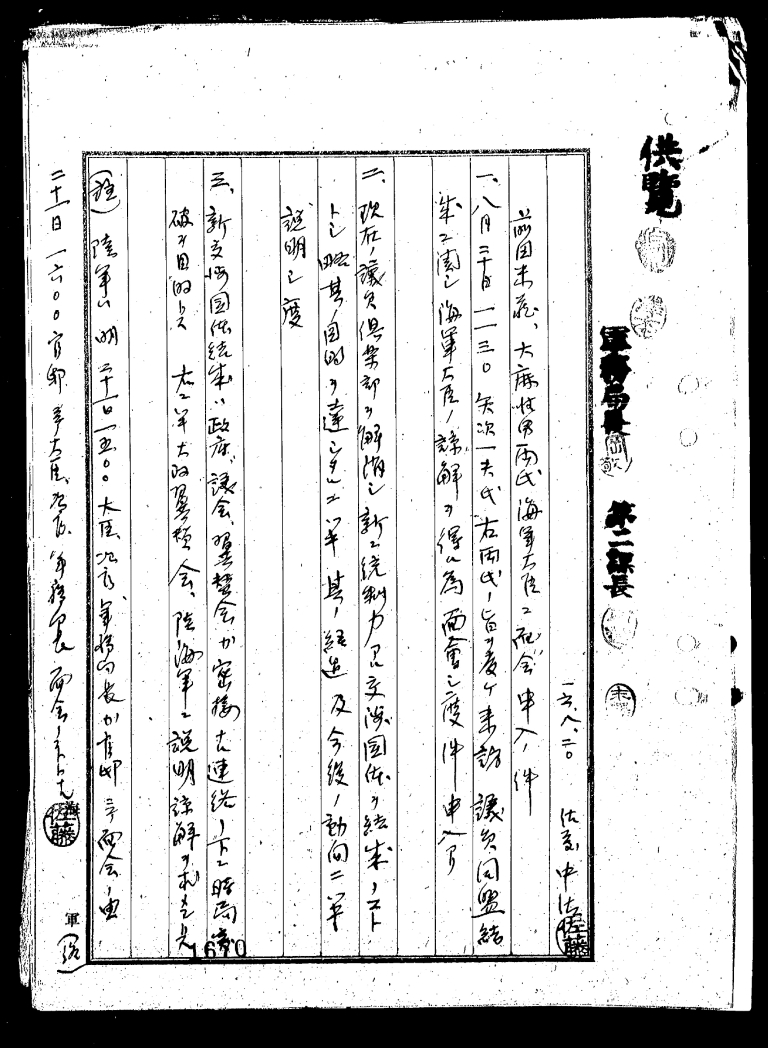 供覽
軍務局長
第二課長
一六、八、二〇 佐藤中佐 佐藤
前田米蔵、大麻唯男両氏海軍大臣ニ面会申入ノ件
一、八月二十日一一三〇矢次一夫氏右両氏ノ旨ヲ受ケ来訪 議員同盟結
成ニ関シ海軍大臣ノ諒解ヲ得ル為面會シ度件申入アリ
二、現在ノ議員倶楽部ヲ解消シ新ニ統制力アル交渉団体ヲ結成ノコト
トシ略其ノ目的ヲ達シタルニ就 其ノ経過及今後ノ動向ニ就
説明シ度
三、新交渉団体結成ハ政府、議会、翼賛会カ密接ナ連絡ノ下ニ時局突
破ヲ目的トス 右ニ就 翼賛会、陸海軍ニ説明諒解ヲ求ム
陸軍ハ明二十一日一五〇〇大臣次官、軍務局長カ官邸ニテ面会ノ由
二十一日一六〇〇官邸 大臣、次官、軍務局長面会ノコトトナル
海 佐藤
軍
1670